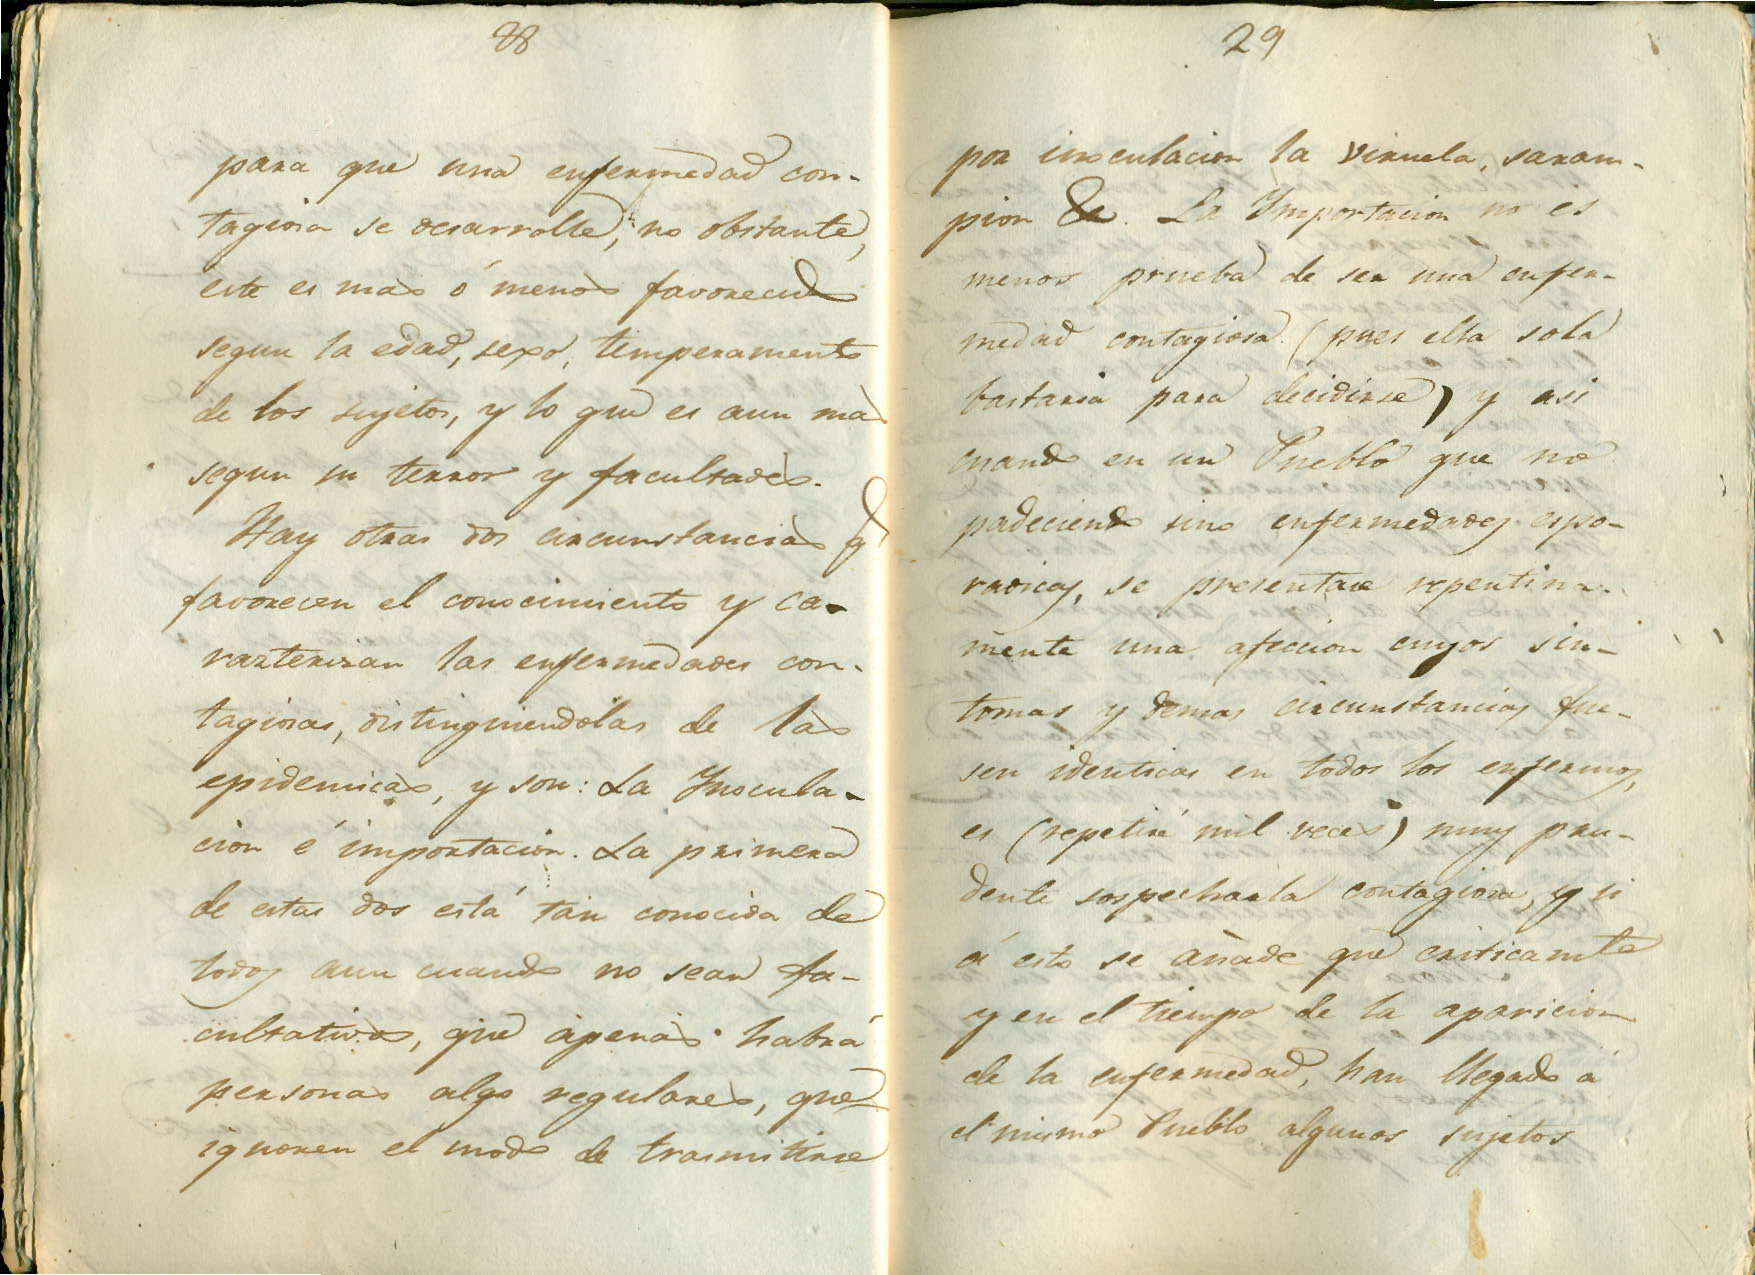 28
para que una enfermedad con-
tagiosa se desarrolle; no obstante,
este es mas ó menos favorecido
segun la edad, sexo, temperamento
de los sujetos, y lo que es aun mas
segun su terror y facultades.
Hay otras dos circunstancias q
favorecen el conocimiento y ca-
razterizan las enfermedades con-
tagiosas, distinguiendolas de las
epidemicas, y son: La Inocula-
cion é importacion. La primera
de estas dos está tan conocida de
todos aun cuando no sean fa-
cultativos, que apenas habrá
personas algo regulares, que
ignoren el modo de trasmitirse
29
por inoculacion la viruela, saram-
pion &c. La Importacion no es
menos prueba de ser una enfer-
medad contagiosa (pues ella sola
bastaria para decidirse) y asi
cuando en un Pueblo que no
padeciendo sino enfermedades espo-
radicas, se presentase repentina-
mente una afeccion cuyos sin-
tomas y demas circunstancias fue-
sen identicas en todos los enfermos,
es (repetiré mil veces) muy pru-
dente sospecharla contagiosa, y si
á esto se añade que criticamte
y en el tiempo de la aparicion
de la enfermedad, han llegado á
el mismo Pueblo algunos sujetos